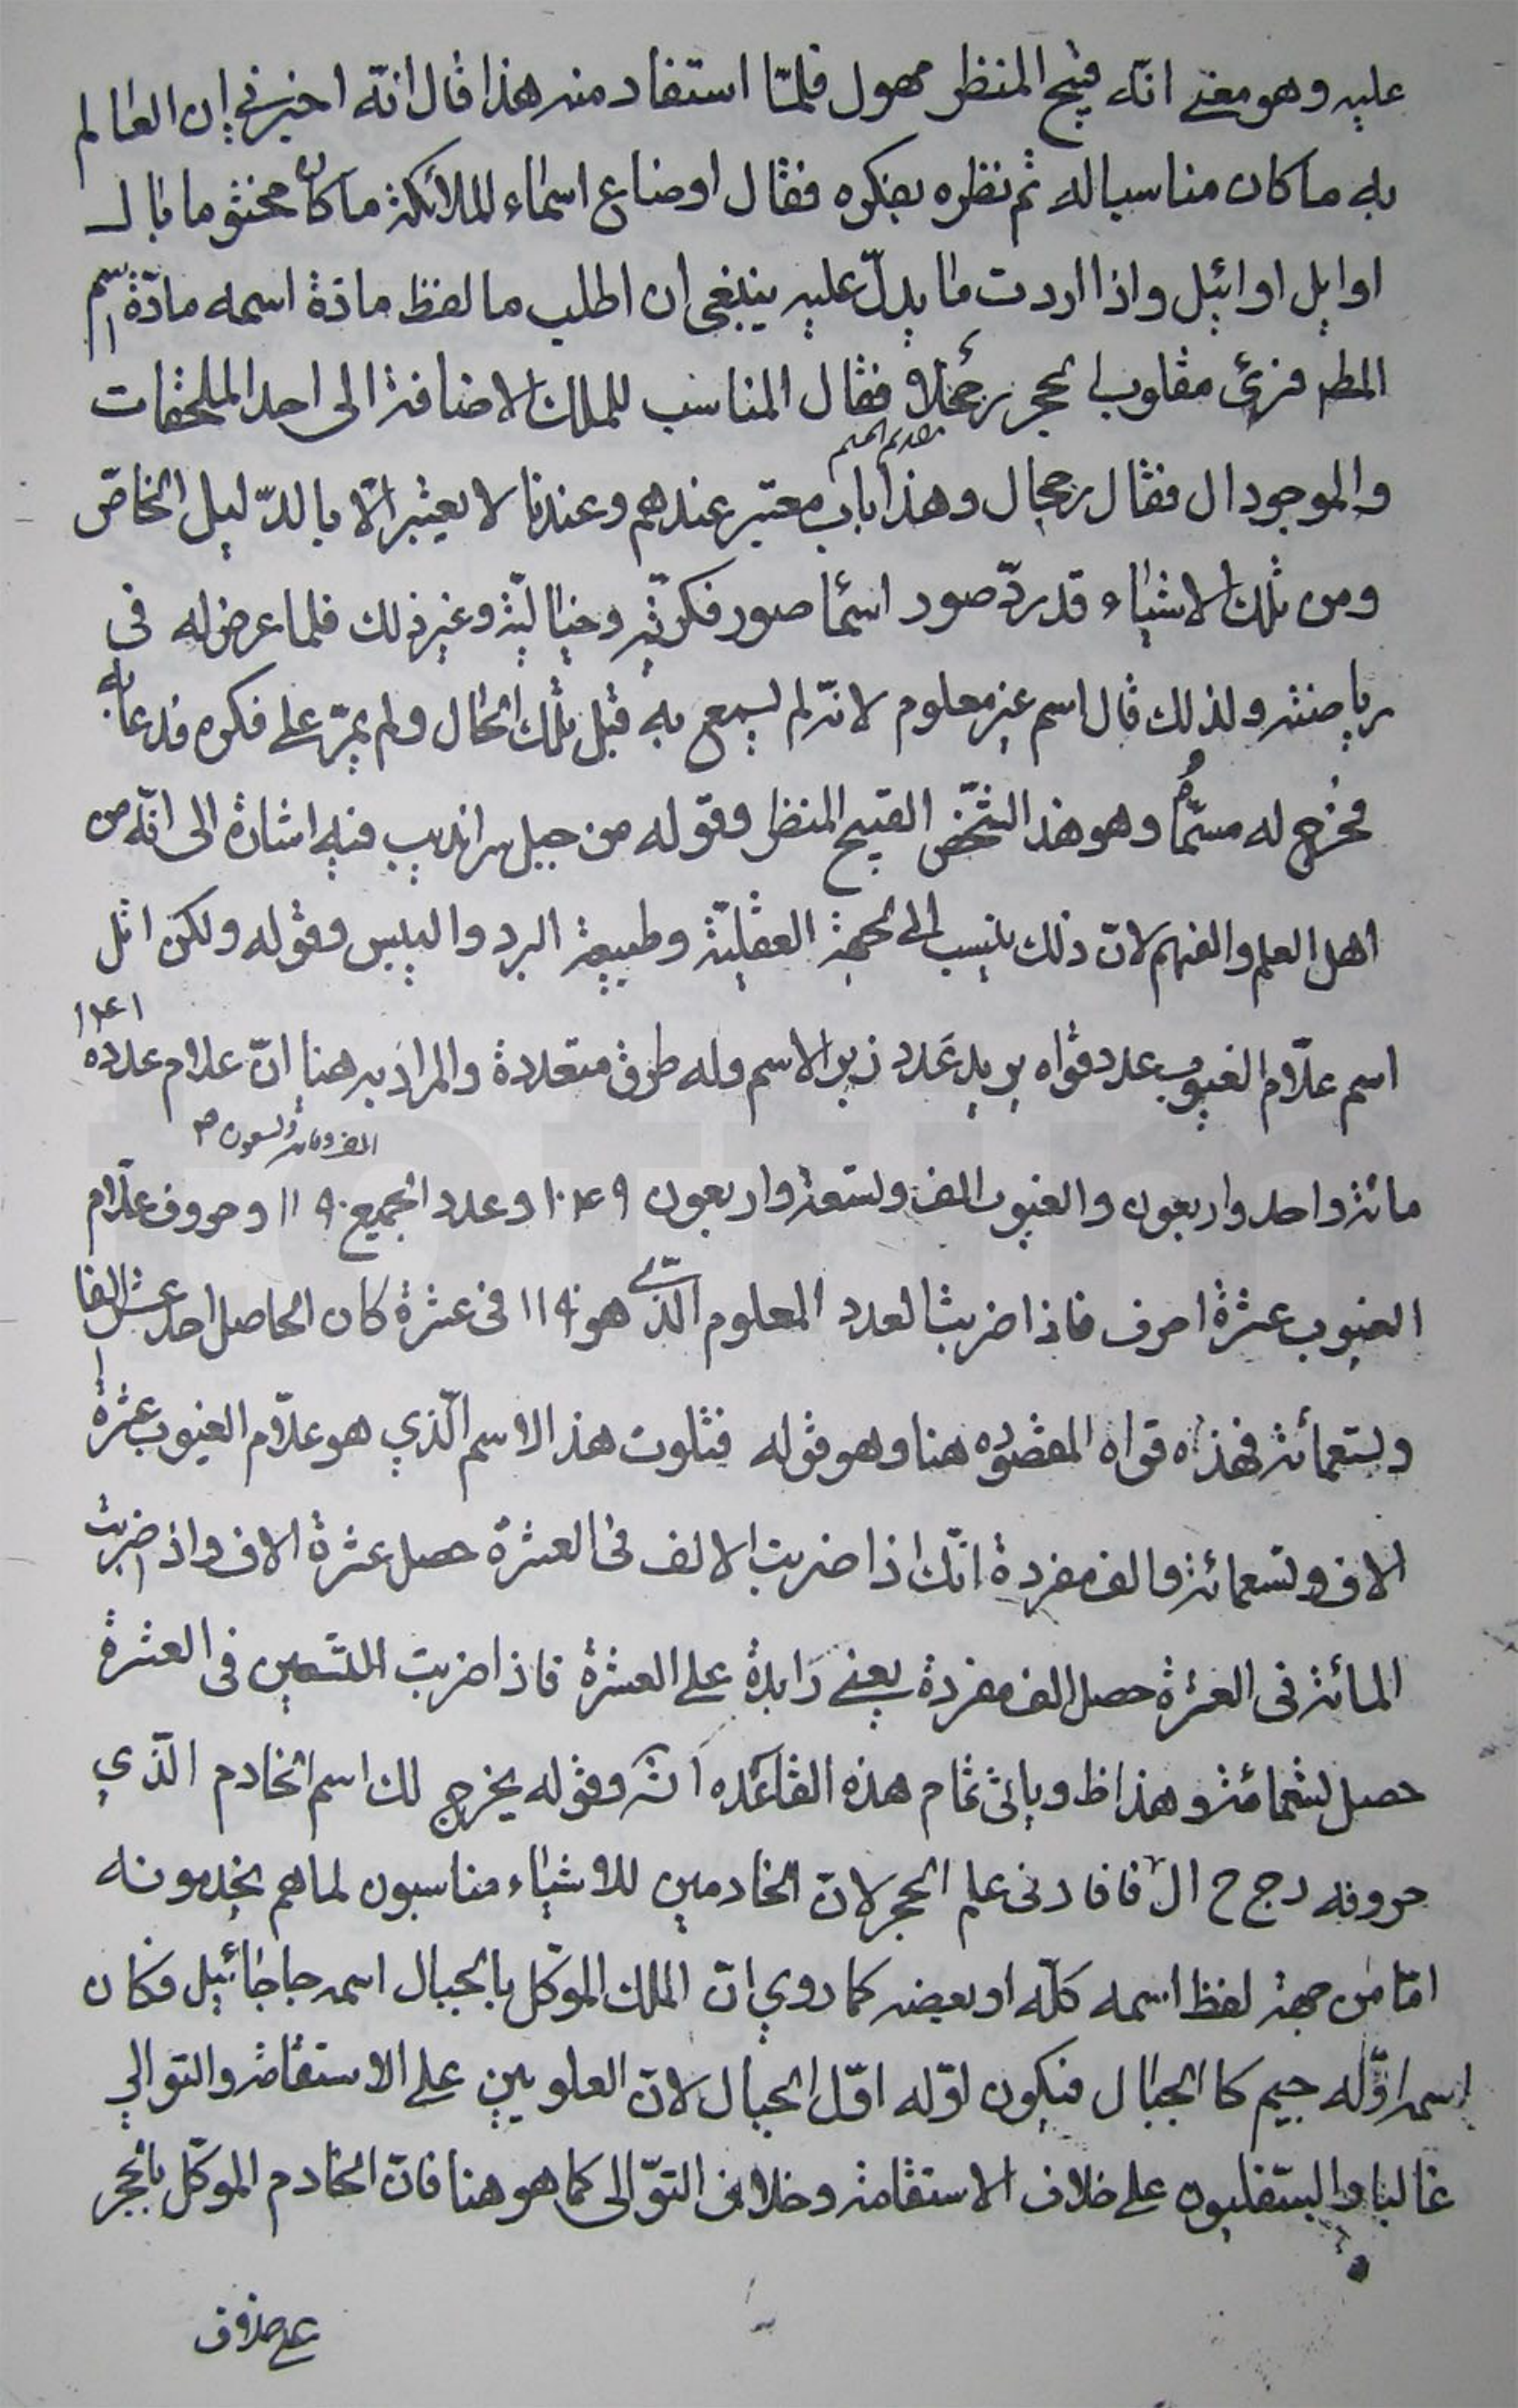 عليه وهو معنى انّه قبيح المنظر مهول فلمّا استفاد منه هذا قال انّه اخبرني ان العالم
به ما كان مناسبا له ثم نظره بفكره فقال اوضاع اسماء للملائكة ما كان مختوما بال
اوايل اوائيل واذا اردت ما يدلّ عليه ينبغي ان اطلب ما لفظ مادة اسمه مادّة اسم
المط فرأى مقلوب الحجر رجحلا فقال المناسب للملك الاضافة الى احد الملحقات
بتقديم الجيم
والموجود ال فقال رجحال وهذا باب معتبر عندهم وعندنا لا يعتبر الّا بالدّليل الخاصّ
ومن تلك الاشياء قد يردّ صور اسما صور فكريّة وخياليّة وغير ذلك فلما عرض له في
رياضته ولذلك قال اسم غير معلوم لانّه لم يسمع به قبل تلك الحال ولم يمرّ على فكره فدعا به
فخرج له مسمّاه وهو هذا الشّخص القبيح المنظر وقوله من جبل سرانديب فيه اشارة الى انّه من
اهل العلم والفهم لانّ ذلك ينسب الى الجهة العقليّة وطبيعة البرد واليبس وقوله ولكن اتل
اسم علّام الغيوب عدد قواه يريد عدد زبر الاسم وله طرق متعددة والمراد به هنا انّ علام عدده
١٤١
مائة واحد واربعون والغيوب الف وتسعة واربعون ١٠٤٩ وعدد الجميع ١١٩٠ وحروف علّام
الف ومائة وتسعون
الغيوب عشرة احرف فاذا ضربت العدد المعلوم الّذي هو ١١٩٠ في عشرة كان الحاصل احد عشر الفا
وتسعمائة فهذه قواه المقصوده هنا وهو قوله فتلوت هذا الاسم الّذي هو علّام الغيوب عشرة
الاف وتسعمائة والف مفردة انّك اذا ضربت الالف في العشرة حصل عشرة الاف واذا ضربت
المائة في العشرة حصل الف مفردة يعني زايدة على العشرة فاذا ضربت التسعين في العشرة
حصل تسعمائة وهذا ظ وياتي تمام هذه القاعده انش وقوله يخرج لك اسم الخادم الّذي
حروفه ر ج ح ال فافادني علم الحجر لانّ الخادمين للاشياء مناسبون لما هم يخدمونه
امّا من جهة لفظ اسمه كلّه او بعضه كما روي انّ الملك الموكّل بالجبال اسمه جاجائيل فكان
اسمه اوّله جيم كالجبال فيكون اوّله اوّل الجبال لانّ العلويين على الاستقامة والتوالي
غالبا والسّفليون على خلاف الاستقامة وخلاف التوّالى كما هو هنا فانّ الخادم الموكّل بالحجر
على خلاف